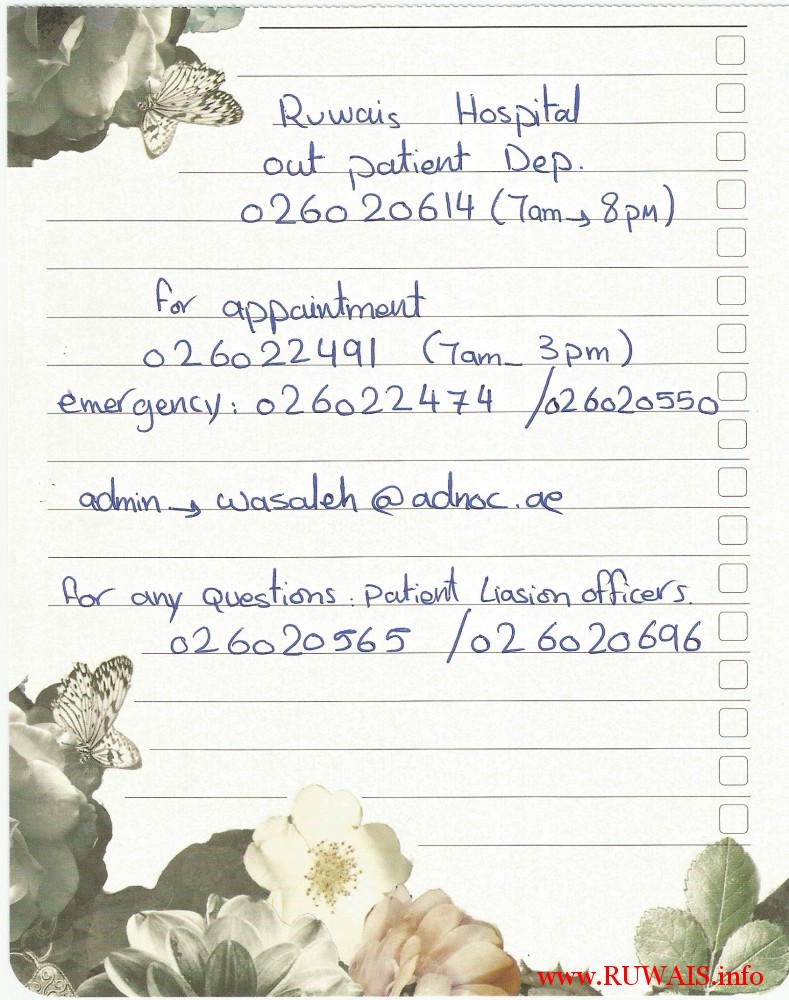 Ruwais Hospital
out patient Dep.
026020614 (7am → 8pm)
for appaintment
026022491 (7am_ 3pm)
emergency: 026022474 /026020550
admin → wasaleh@adnoc.ae
for any questions: patient Liasion officers.
026020565 /026020696
www.RUWAIS.info